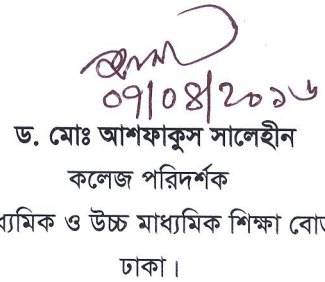 ০৭/০৪/২০১৬
ড. মোঃ আশফাকুস সালেহীন
কলেজ পরিদর্শক
ও উচ্চ মাধ্যমিক শিক্ষা
ঢাকা।